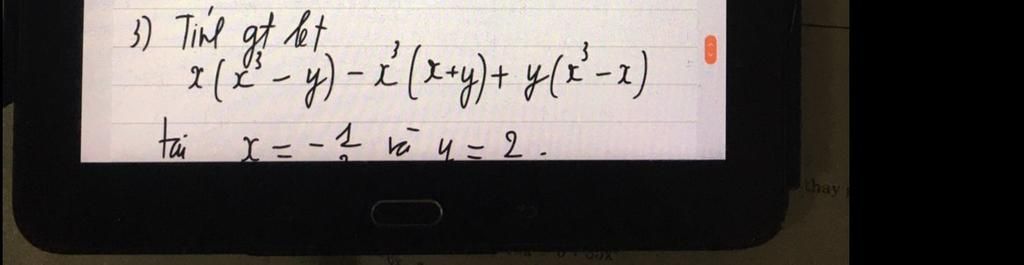 3) Tính gt bt
x(x³ - y) - x³(x+y) + y(x³ - x)
tại x = - 1/2 và y = 2.
thay